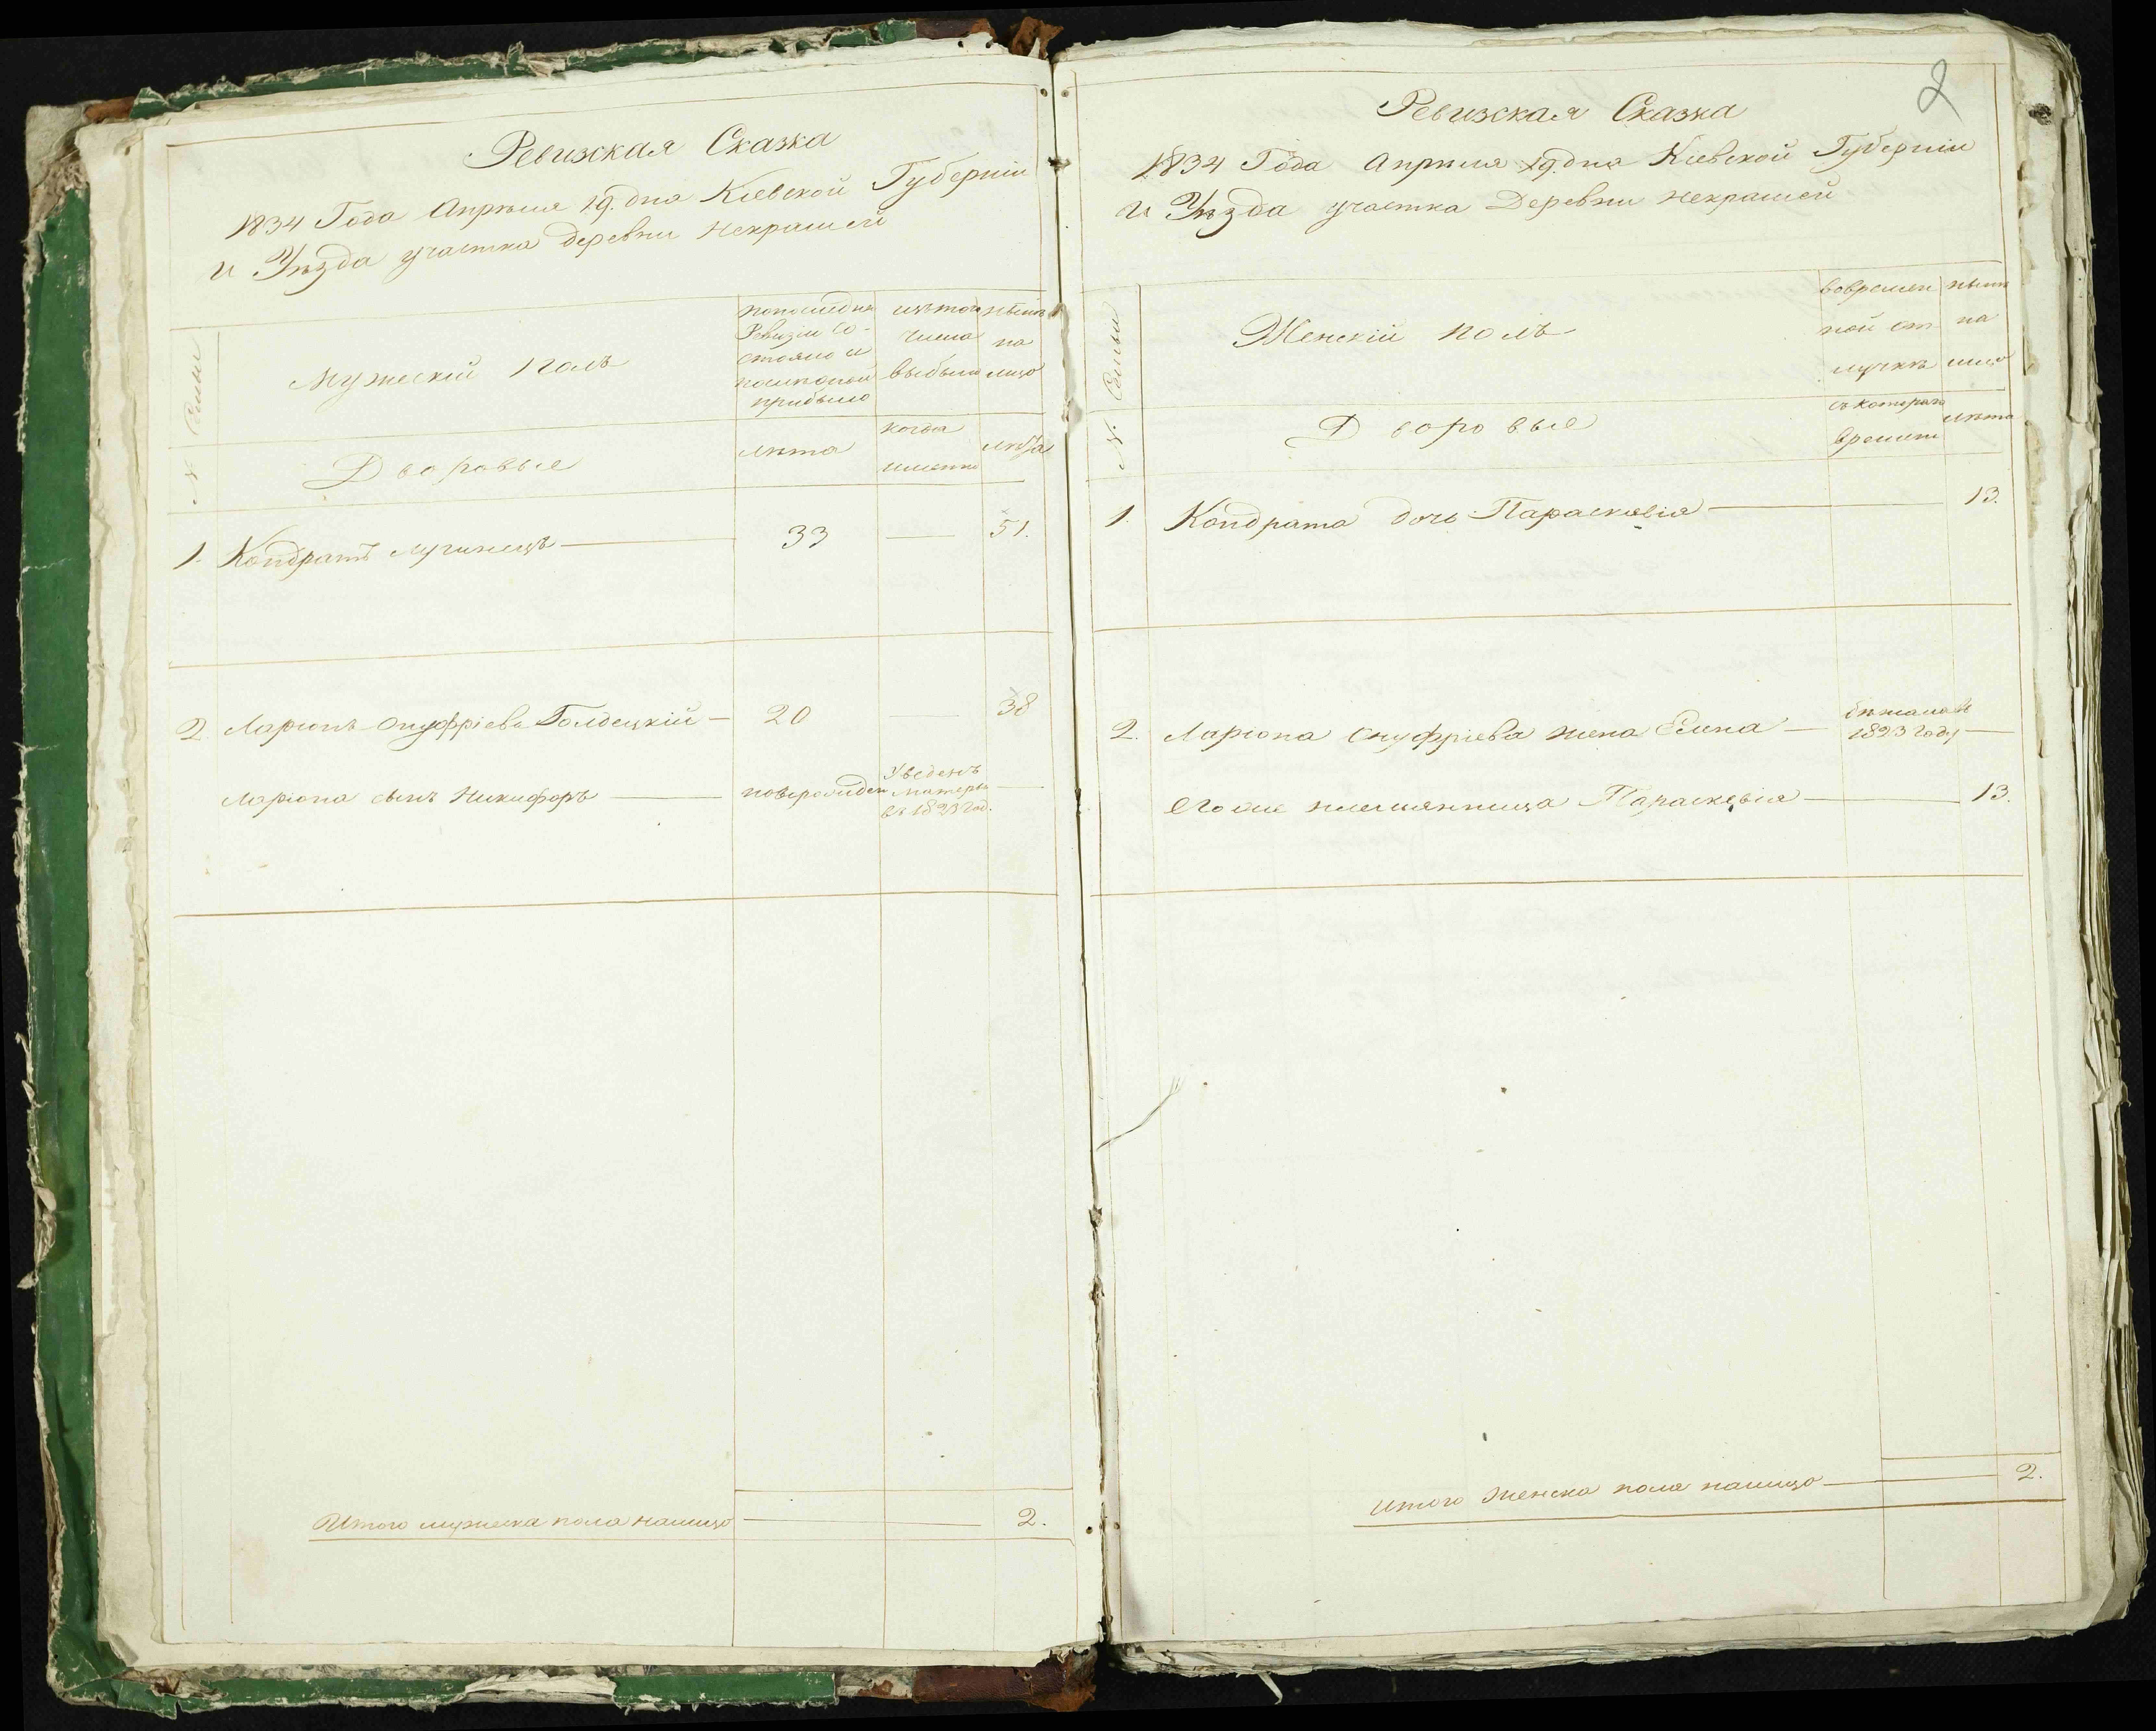 Ревизская Сказка
1834 Года Апреля 19. дня Киевской Губернии
и Уѣзда участка деревни Некрашей
N. Семьи
Мужеский полъ
по последней
Ревизии со-
стояло и
после оной
прибыло
изъ того
числа
выбыли
ныне
на
лицо
Дворовые
лѣта
когда
именно
лѣта
1. Кондратъ Лучинецъ — 33 — 51.
2 Ларионъ Онуфріевъ Голдецкій — 20 — 38
Ларіона сынъ Никифоръ — новорожден
Уведенъ
матерью
въ 1823 год. —
Итого мужеска пола налицо — 2.
2
Ревизская Сказка
1834 Года Апреля 19. дня Киевской Губерніи
и Уѣзда участка Деревни Некрашей
N. Семьи
Женскій полъ
во времен
ной от
лучкѣ
ныне
на
лицо
Дворовые
съ котораго
времени
лѣта
1. Кондрата дочь Параскевія — 13.
2. Ларіона Онуфріева жена Елена —
бѣжала въ
1823 году —
Его же племянница Параскевія — 13.
Итого женска пола налицо — 2.